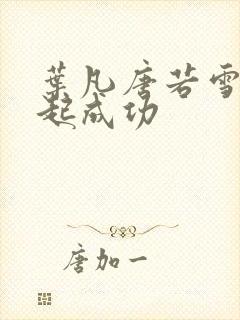 葉凡唐若雪
起成功
唐加一